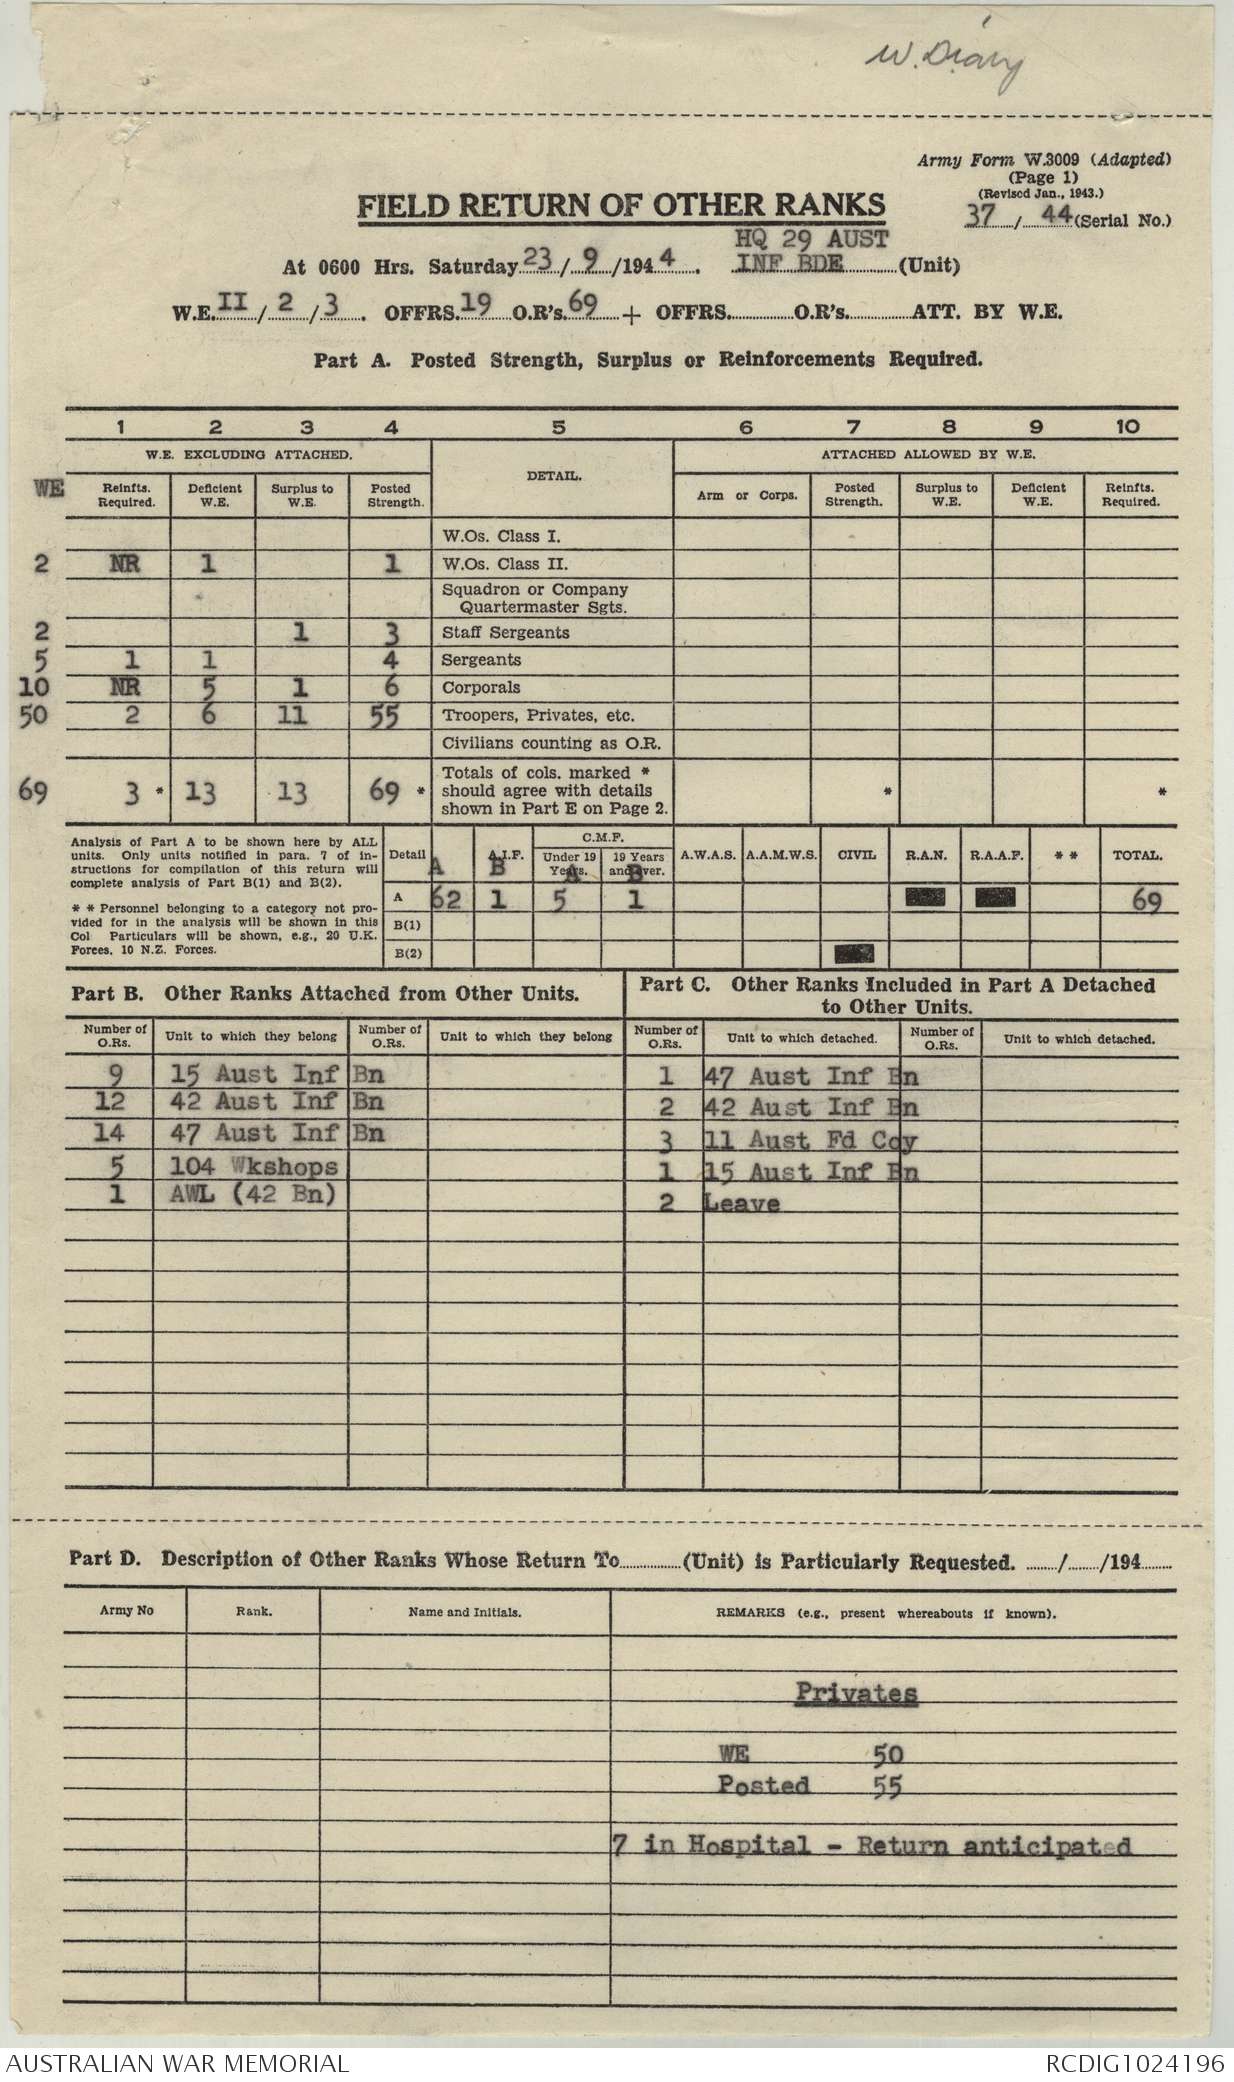 W. Diary
Army Form W.3009 (Adapted)
(Page 1)
(Revised Jan., 1943.)
37 / 44 (Serial No.)
FIELD RETURN OF OTHER RANKS
HQ 29 AUST
At 0600 Hrs. Saturday 23 / 9 /194 4 . INF BDE (Unit)
W.E. II / 2 / 3 . OFFRS. 19 O.R's. 69 + OFFRS. O.R's. ATT. BY W.E.
Part A. Posted Strength, Surplus or Reinforcements Required.
1 2 3 4 5 6 7 8 9 10
W.E. EXCLUDING ATTACHED. DETAIL. ATTACHED ALLOWED BY W.E.
WE Reinfts. Required. Deficient W.E. Surplus to W.E. Posted Strength. Arm or Corps. Posted Strength. Surplus to W.E. Deficient W.E. Reinfts. Required.
W.Os. Class I.
2 NR 1 1 W.Os. Class II.
Squadron or Company
Quartermaster Sgts.
2 1 3 Staff Sergeants
5 1 1 4 Sergeants
10 NR 5 1 6 Corporals
50 2 6 11 55 Troopers, Privates, etc.
Civilians counting as O.R.
Totals of cols. marked *
69 3 * 13 13 69 * should agree with details * *
shown in Part E on Page 2.
Analysis of Part A to be shown here by ALL
units. Only units notified in para. 7 of in-
structions for compilation of this return will
complete analysis of Part B(1) and B(2).
* * Personnel belonging to a category not pro-
vided for in the analysis will be shown in this
Col Particulars will be shown, e.g., 20 U.K.
Forces, 10 N.Z. Forces.
C.M.F.
Detail A.I.F. Under 19 Years. 19 Years and over. A.W.A.S. A.A.M.W.S. CIVIL R.A.N. R.A.A.F. * * TOTAL.
A B A B
A 62 1 5 1 69
B(1)
B(2)
Part B. Other Ranks Attached from Other Units.
Number of O.Rs. Unit to which they belong Number of O.Rs. Unit to which they belong
9 15 Aust Inf Bn
12 42 Aust Inf Bn
14 47 Aust Inf Bn
5 104 Wkshops
1 AWL (42 Bn)
Part C. Other Ranks Included in Part A Detached
to Other Units.
Number of O.Rs. Unit to which detached. Number of O.Rs. Unit to which detached.
1 47 Aust Inf Bn
2 42 Aust Inf Bn
3 11 Aust Fd Coy
1 15 Aust Inf Bn
2 Leave
Part D. Description of Other Ranks Whose Return To (Unit) is Particularly Requested. / /194
Army No Rank. Name and Initials. REMARKS (e.g., present whereabouts if known).
Privates
WE 50
Posted 55
7 in Hospital - Return anticipated
AUSTRALIAN WAR MEMORIAL RCDIG1024196